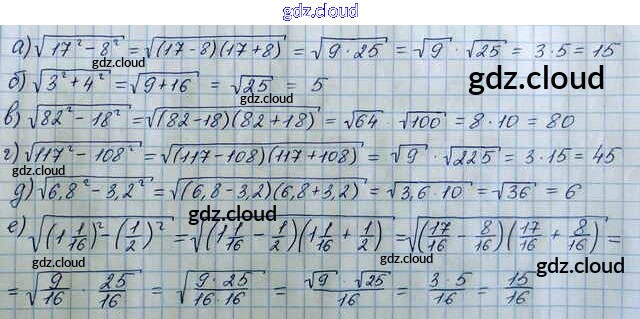 gdz.cloud
а) √(17² − 8²) = √((17−8)(17+8)) = √(9·25) = √9 · √25 = 3·5 = 15
gdz.cloud
б) √(3² + 4²) = √(9+16) = √25 = 5
gdz.cloud
gdz.cloud
в) √(82² − 18²) = √((82−18)(82+18)) = √64 · √100 = 8·10 = 80
gdz.cloud
г) √(117² − 108²) = √((117−108)(117+108)) = √9 · √225 = 3·15 = 45
gdz.cloud
д) √(6,8² − 3,2²) = √((6,8−3,2)(6,8+3,2)) = √(3,6·10) = √36 = 6
gdz.cloud
е) √((1 1/16)² − (1/2)²) = √((1 1/16 − 1/2)(1 1/16 + 1/2)) = √((17/16 − 8/16)(17/16 + 8/16)) =
gdz.cloud gdz.cloud
= √(9/16 · 25/16) = √((9·25)/(16·16)) = (√9 · √25)/16 = (3·5)/16 = 15/16
gdz.cloud